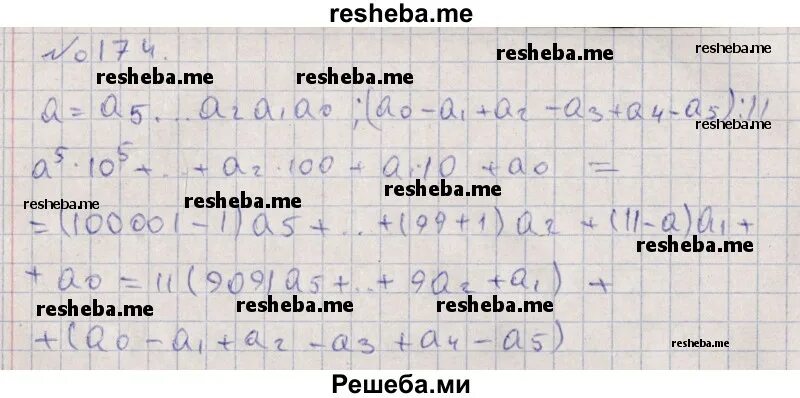 resheba.me
№174.
resheba.me
resheba.me resheba.me
a = a5...a2a1a0 ; (a0 - a1 + a2 - a3 + a4 - a5) ⋮ 11
resheba.me
a^5·10^5 + ... + a2·100 + a1·10 + a0 =
resheba.me
resheba.me resheba.me
= (100001 - 1) a5 + ... + (99 + 1) a2 + (11 - a) a1 +
resheba.me
+ a0 = 11 (9091 a5 + ... + 9a2 + a1) +
resheba.me resheba.me
+ (a0 - a1 + a2 - a3 + a4 - a5)
resheba.me
Решеба.ми